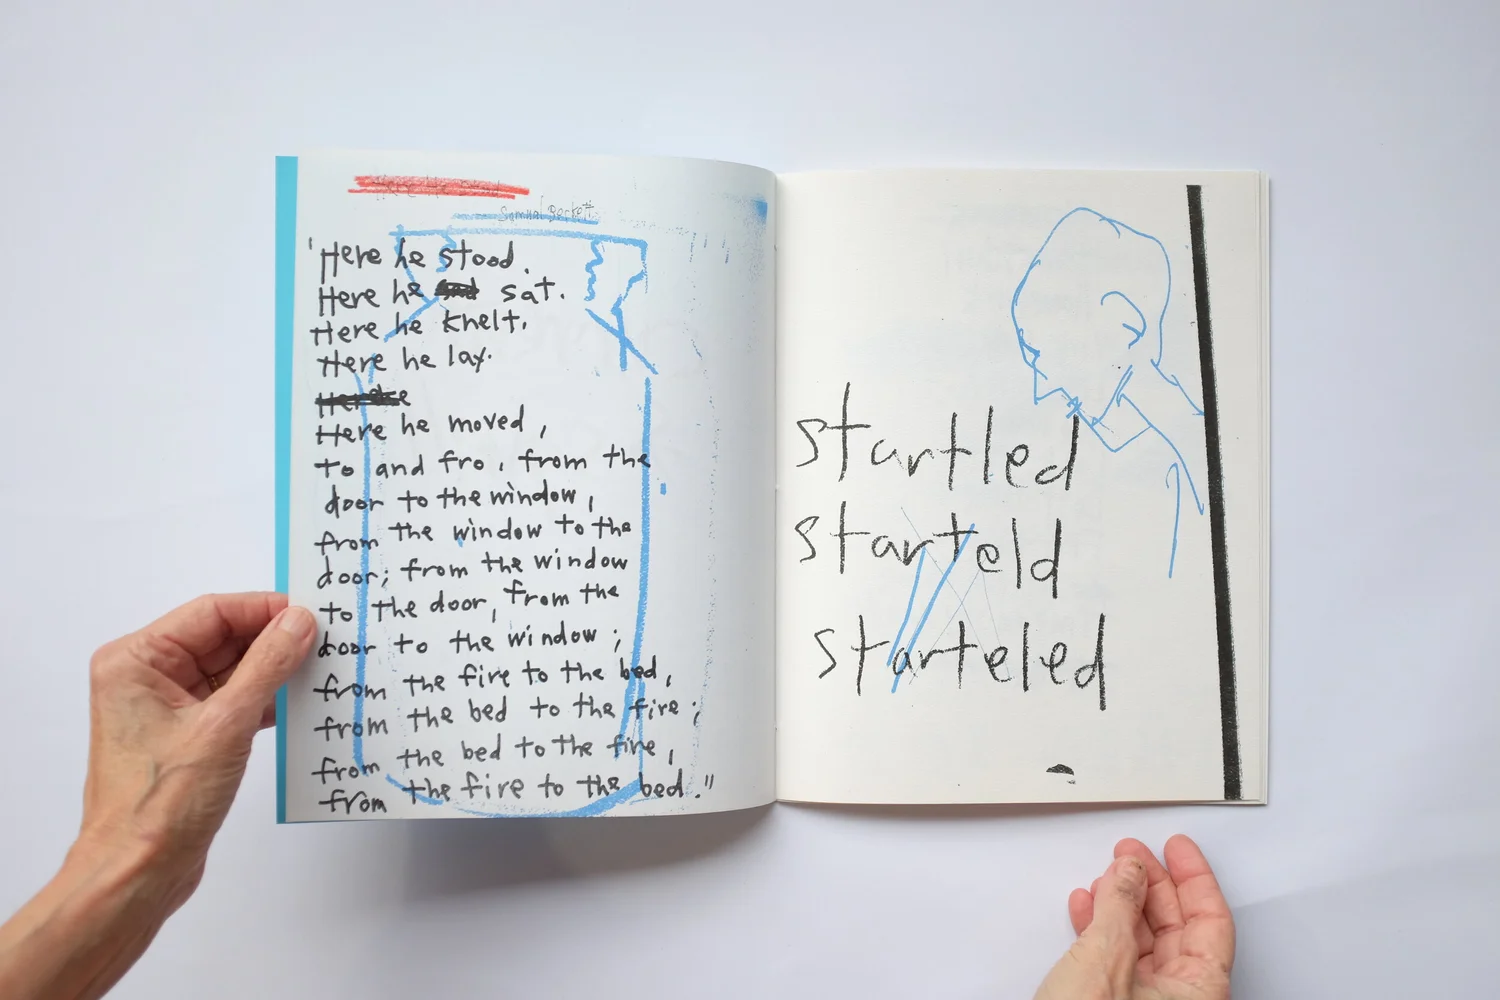 Samual Beckett
'Here he stood.
Here he sat.
Here he knelt.
Here he lay.
Here
Here he moved,
to and fro, from the
door to the window,
from the window to the
door; from the window
to the door, from the
door to the window;
from the fire to the bed,
from the bed to the fire;
from the bed to the fire,
from the fire to the bed."
startled
starteld
starteled